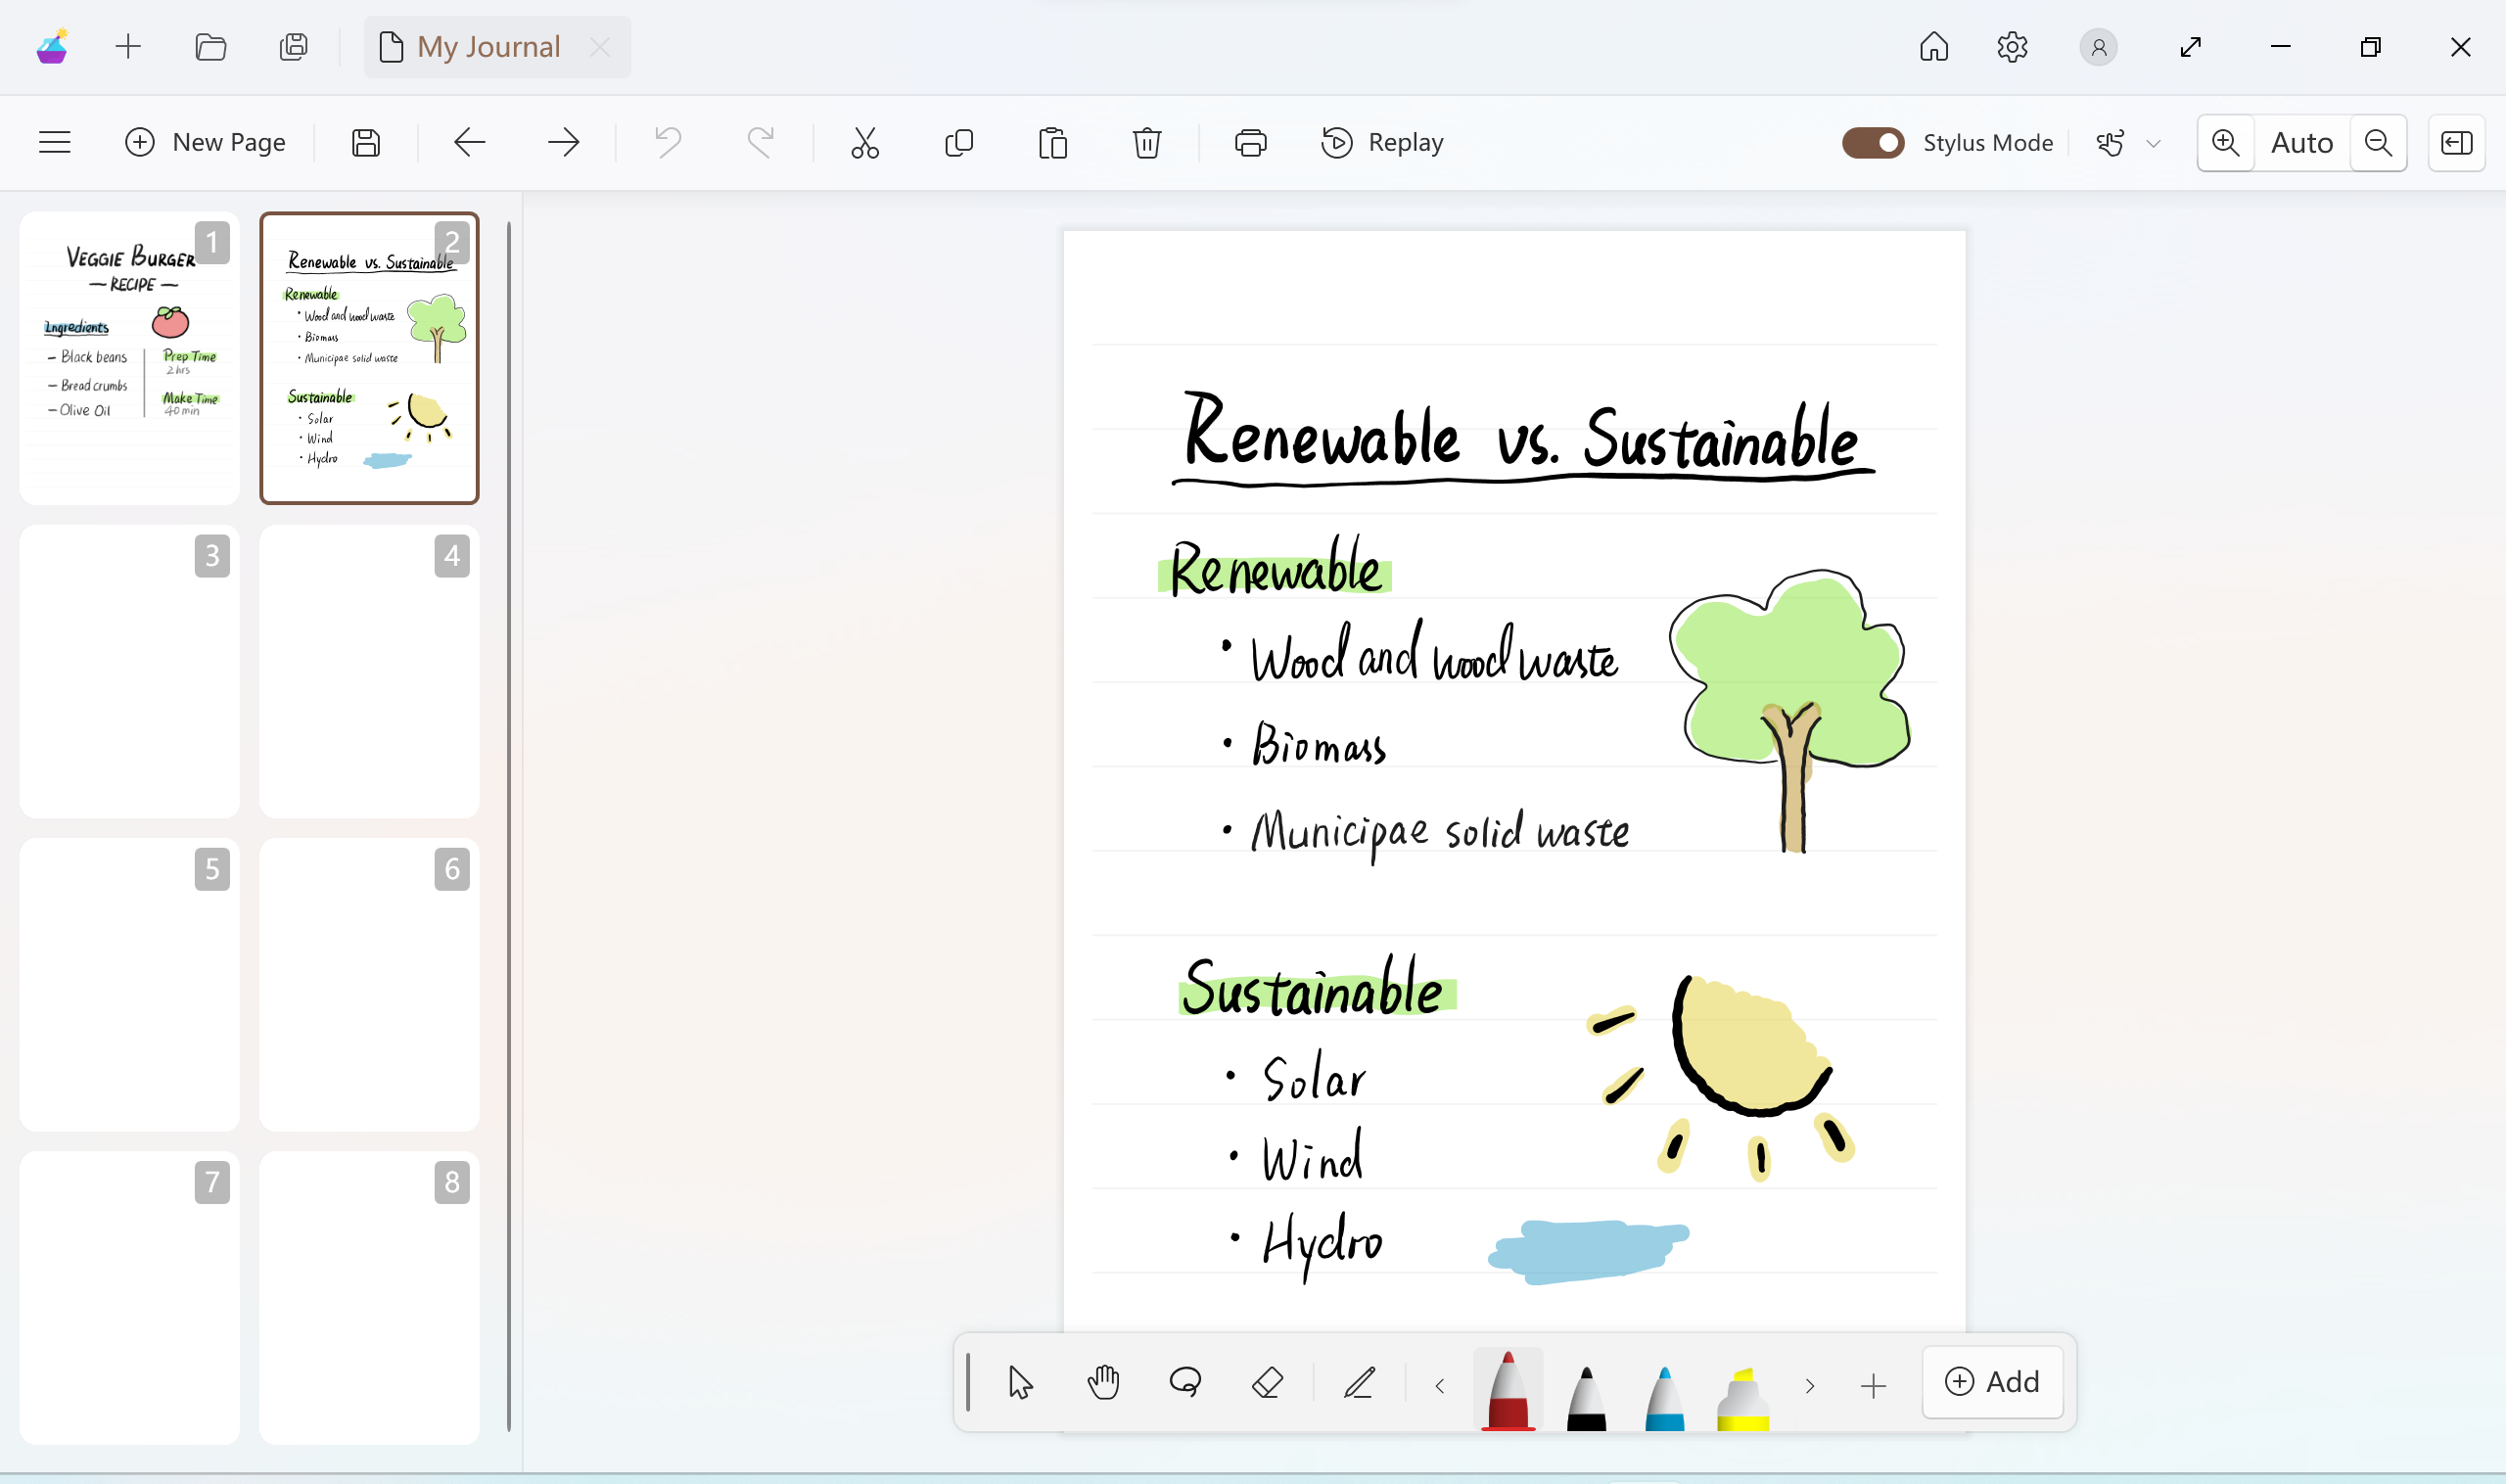 My Journal
New Page
Replay
Stylus Mode
Auto
1
VEGGIE BURGER
— RECIPE —
Ingredients
– Black beans
– Bread crumbs
– Olive Oil
Prep Time
2 hrs
Make Time
40 min
2
Renewable vs. Sustainable
Renewable
• Wood and wood waste
• Biomass
• Municipae solid waste
Sustainable
• Solar
• Wind
• Hydro
3
4
5
6
7
8
Renewable vs. Sustainable
Renewable
• Wood and wood waste
• Biomass
• Municipae solid waste
Sustainable
• Solar
• Wind
• Hydro
Add